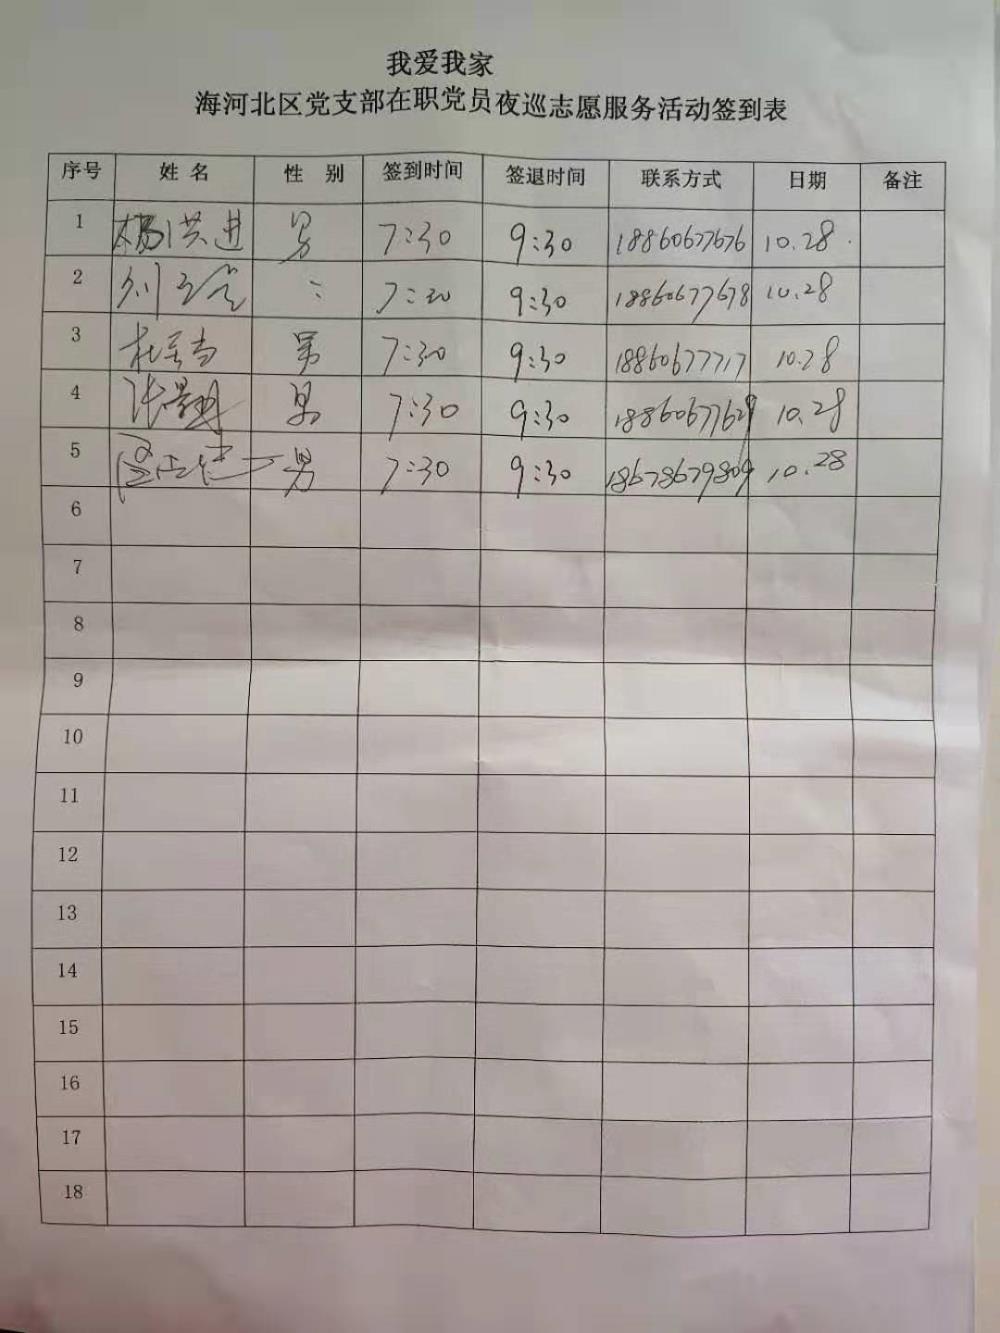 我爱我家
海河北区党支部在职党员夜巡志愿服务活动签到表
序号 姓名 性别 签到时间 签退时间 联系方式 日期 备注
1 杨洪进 男 7:30 9:30 18860677676 10.28
2 7:30 9:30 18860677678 10.28
3 男 7:30 9:30 18860677717 10.28
4 男 7:30 9:30 18860677629 10.28
5 男 7:30 9:30 18678679809 10.28
6
7
8
9
10
11
12
13
14
15
16
17
18